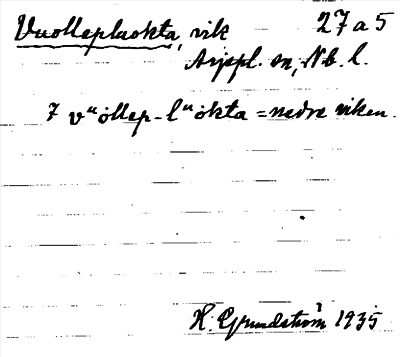 Vuollepluokta, vik 27 a 5
Arjepl. sn, Nb. l.
7 vᵘollep-lᵘokta = nedre viken.
H. Grundström 1935